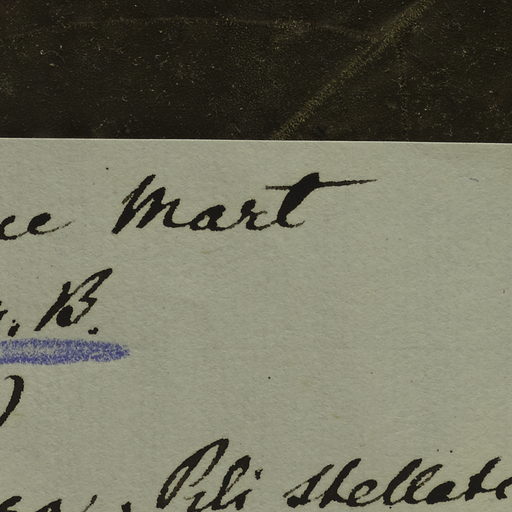 Mart
. B.
)
. Pili stellati